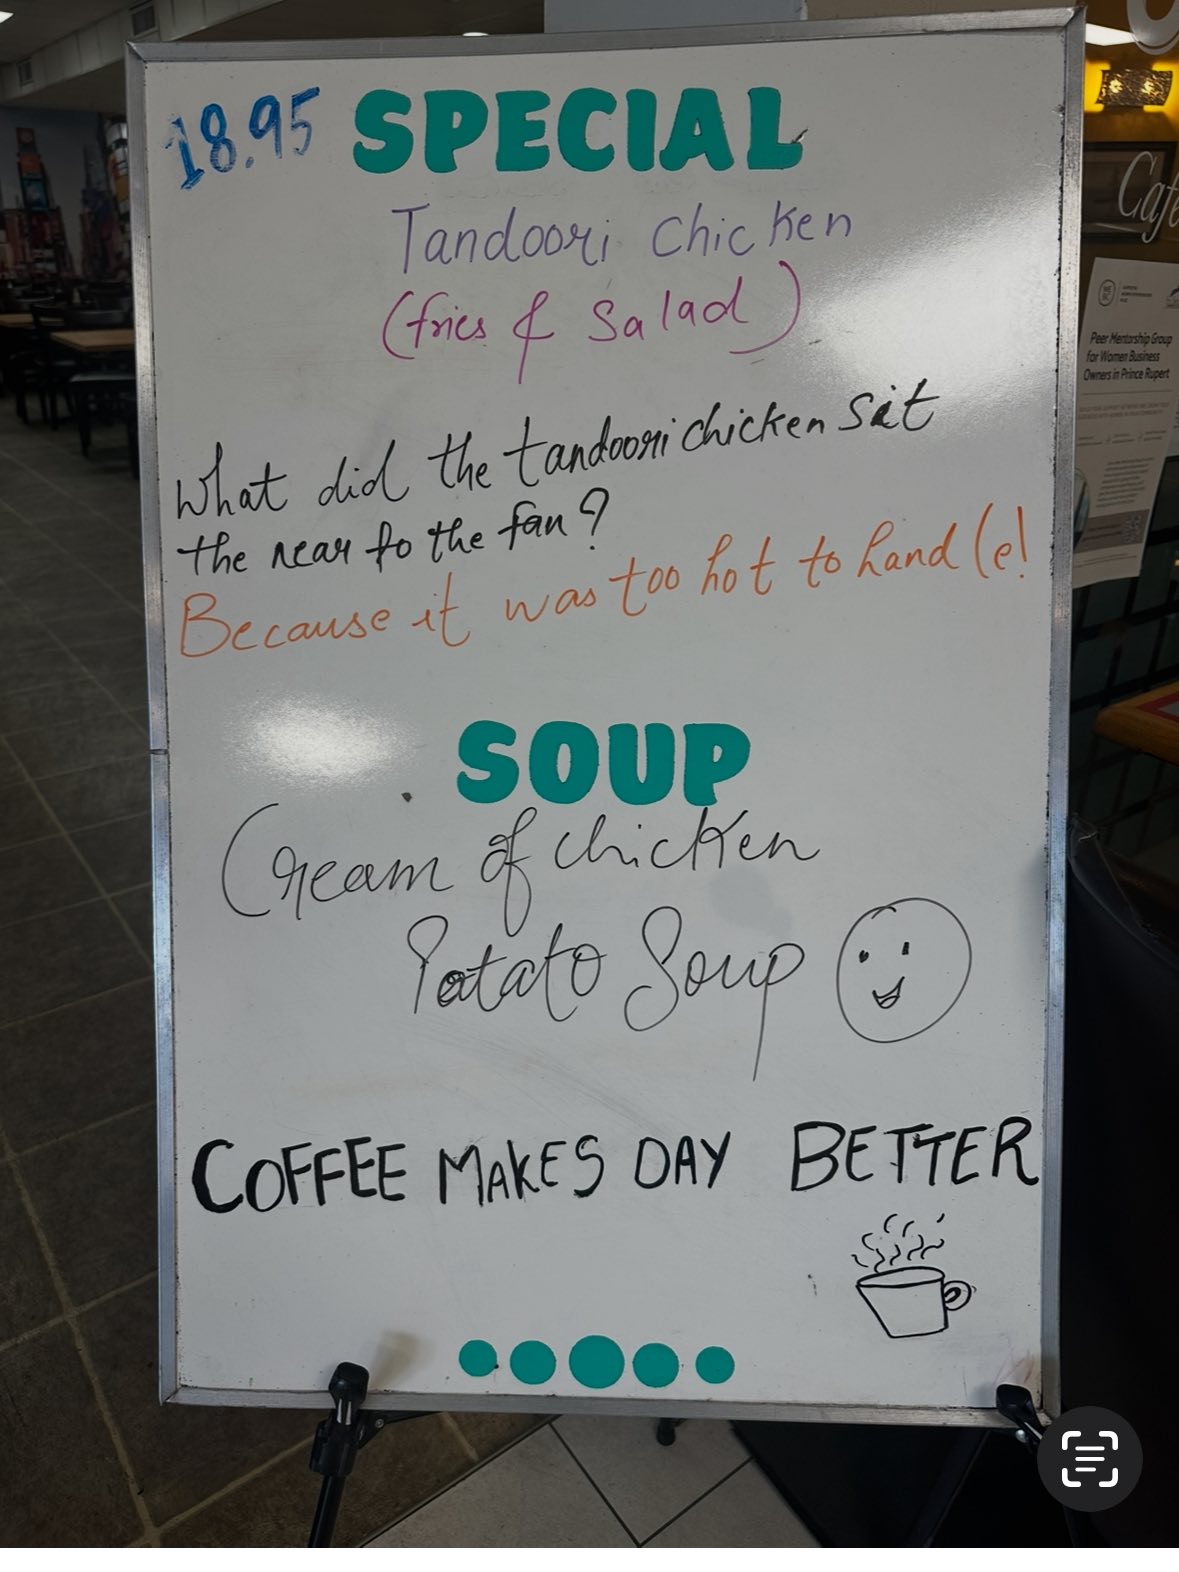 18.95 SPECIAL
Tandoori chicken
(fries & Salad)
What did the tandoori chicken sit
the near to the fan?
Because it was too hot to handle!
SOUP
Cream of chicken
Potato Soup
COFFEE MAKES DAY BETTER
Cafe
Peer Mentorship Group
for Women Business
Owners in Prince Rupert